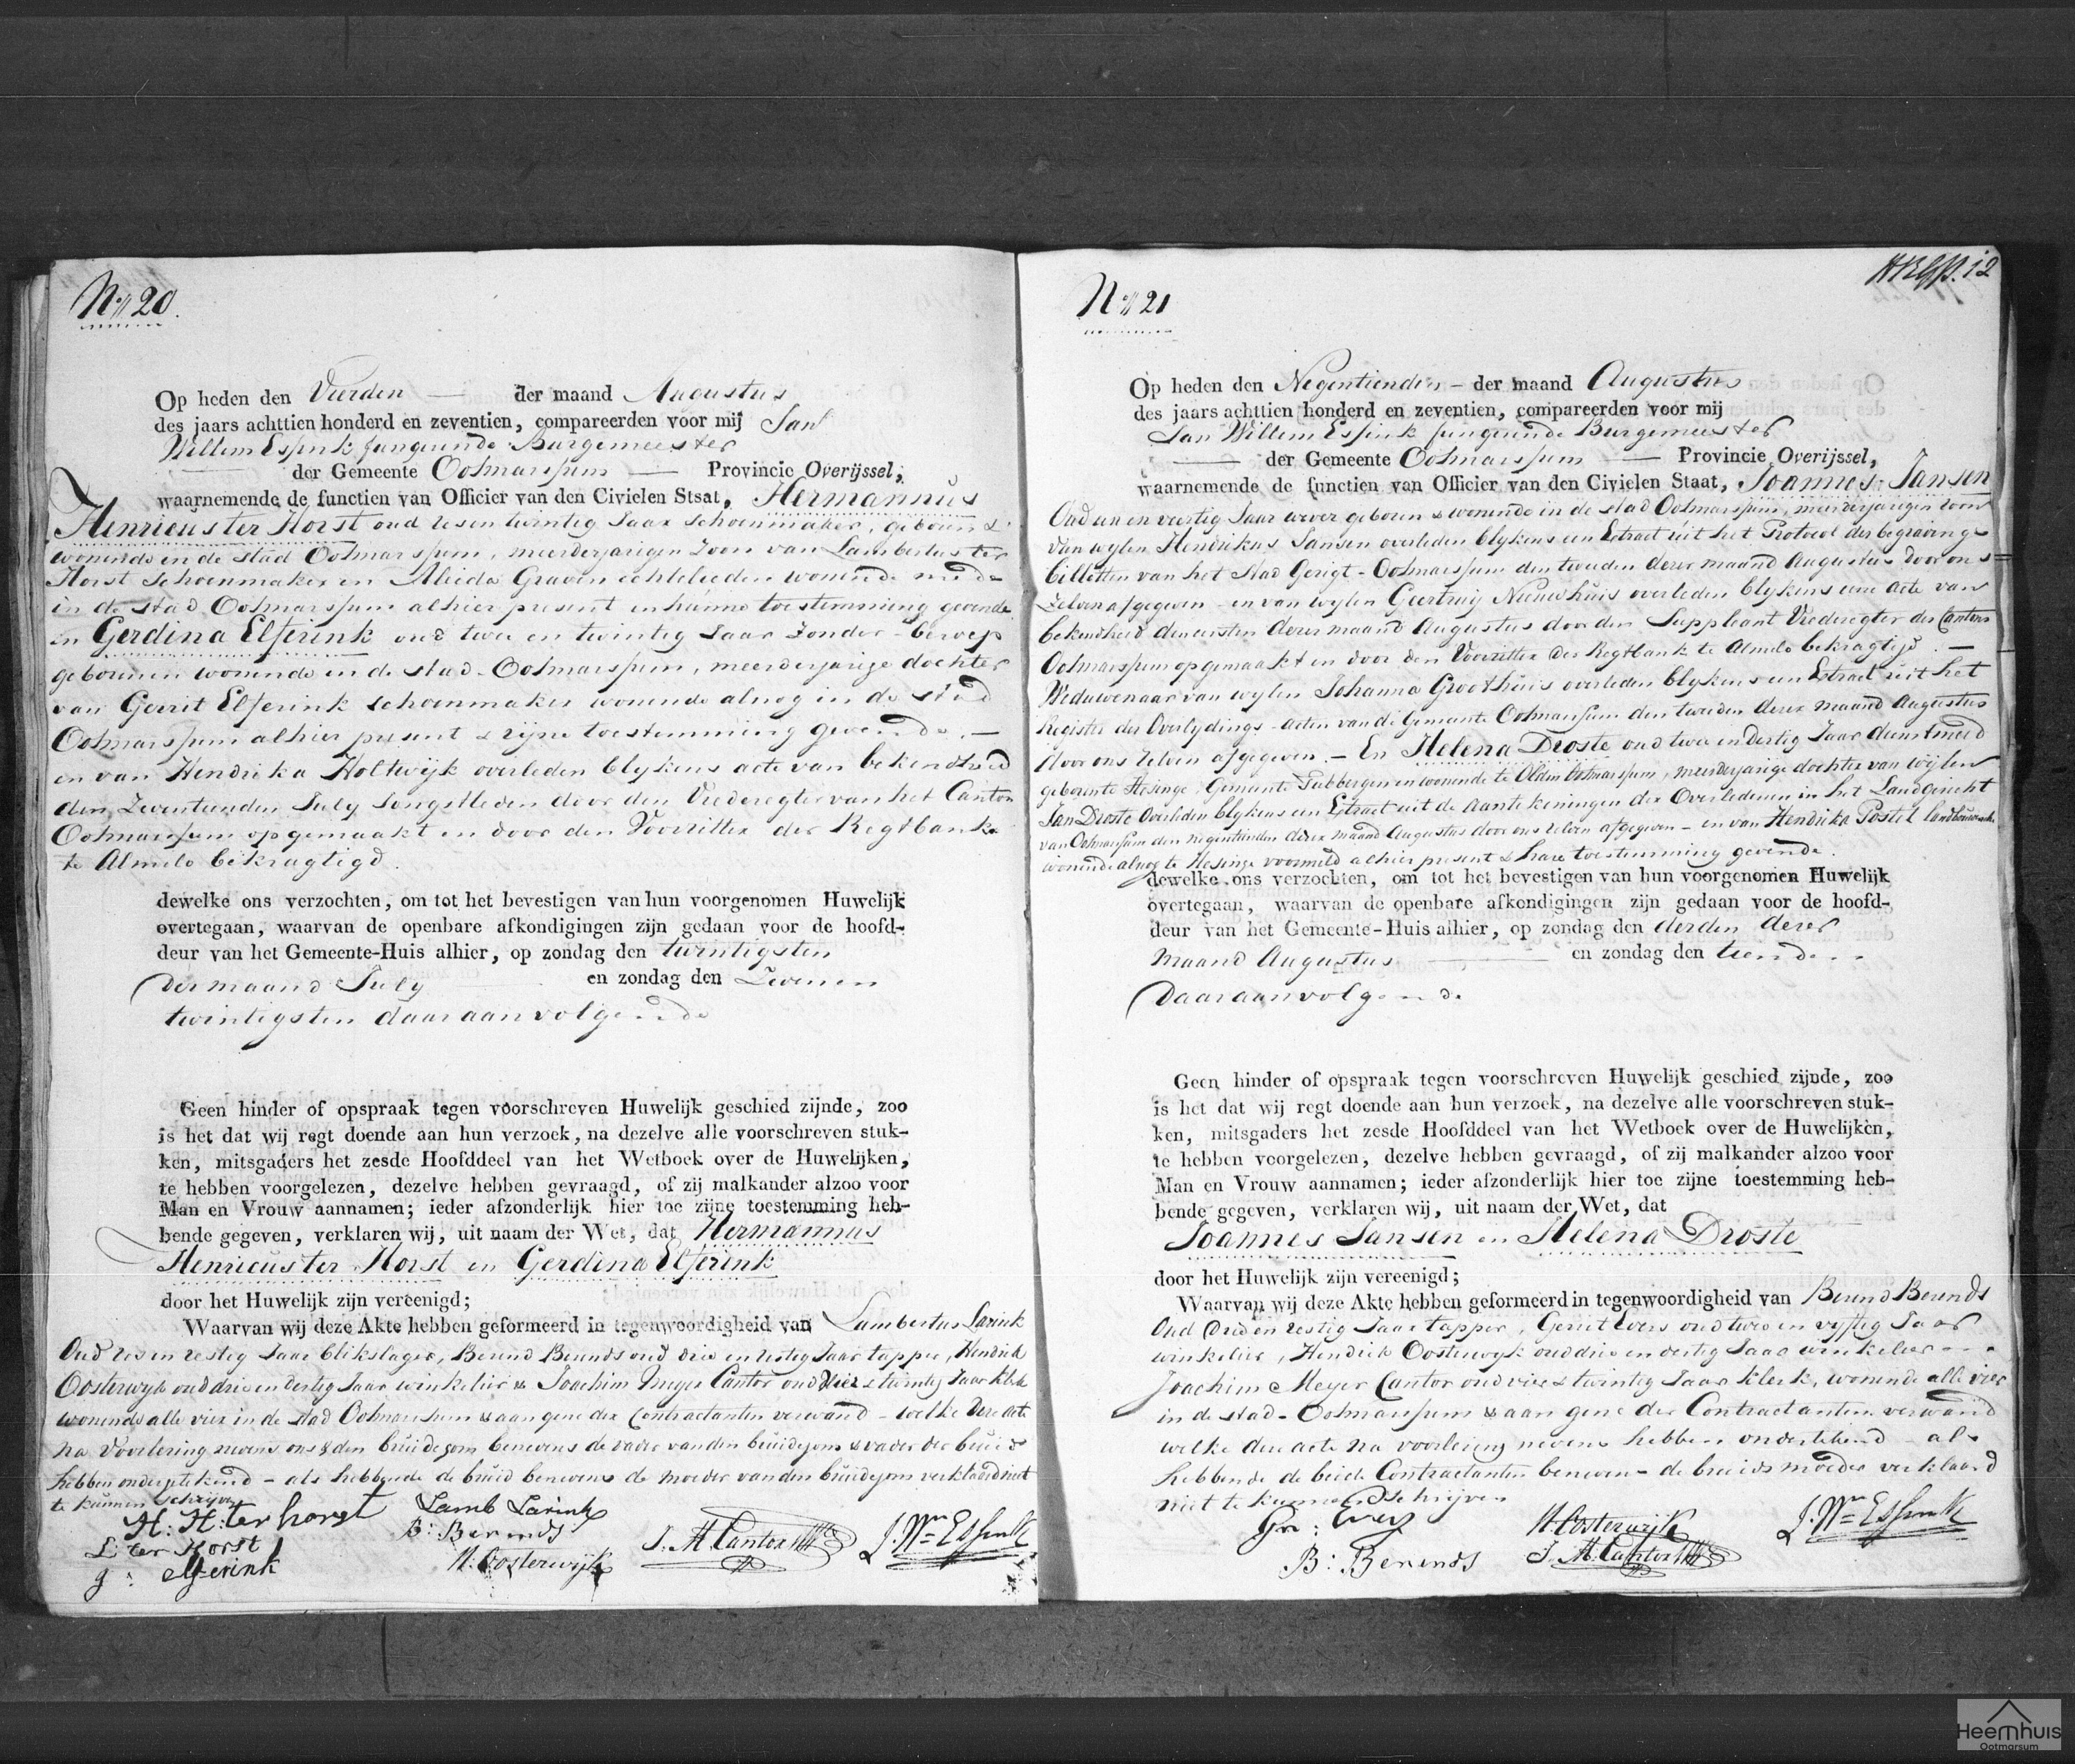 No 20.
Op heden den Vierden — der maand Augustus
des jaars achttien honderd en zeventien, compareerden voor mij Jan
Willem Essink fungeerende Burgemeester
der Gemeente Ootmarssum — Provincie Overijssel,
waarnemende de functien van Officier van den Civielen Stsat, Hermannus
Henricus ter Horst oud zes en twintig Jaar schoenmaker, geboren &
wonende in de stad Ootmarssum, meerderjarigen Zoon van Lambertus ter
Horst schoenmaker en Aleida Graven echtelieden wonende mede
in de stad Ootmarssum alhier present en hunne toestemming gevende
en Gerdina Elferink oud twee en twintig Jaar Zonder beroep
geboren en wonende in de stad Ootmarssum, meerderjarige dochter
van Gerrit Elferink schoenmaker wonende alnog in de stad
Ootmarssum alhier present & zijne toestemming gevende. —
en van Hendrika Holtwijk overleden blykens acte van bekendheid
den Zeventienden July Jongstleden door den Vrederegter van het Canton
Ootmarssum opgemaakt en door den Voorzitter der Regtbank
te Almelo bekragtigd.
dewelke ons verzochten, om tot het bevestigen van hun voorgenomen Huwelijk
overtegaan, waarvan de openbare afkondigingen zijn gedaan voor de hoofd-
deur van het Gemeente-Huis alhier, op zondag den twintigsten
der maand July en zondag den Zeven en
twintigsten daaraanvolgende
Geen hinder of opspraak tegen voorschreven Huwelijk geschied zijnde, zoo
is het dat wij regt doende aan hun verzoek, na dezelve alle voorschreven stuk-
ken, mitsgaders het zesde Hoofddeel van het Wetboek over de Huwelijken,
te hebben voorgelezen, dezelve hebben gevraagd, of zij malkander alzoo voor
Man en Vrouw aannamen; ieder afzonderlijk hier toe zijne toestemming heb-
bende gegeven, verklaren wij, uit naam der Wet, dat Hermannus
Henricus ter Horst en Gerdina Elferink
door het Huwelijk zijn vereenigd;
Waarvan wij deze Akte hebben geformeerd in tegenwoordigheid van Lambertus Larink
Oud zes en zestig Jaar blikslager, Berend Berends oud drie en zestig Jaar tapper, Hendrik
Oosterwyk oud drie en dertig Jaar winkelier & Joachim Meyer Cantor oud vier & twintig Jaar klerk
wonende alle vier in de stad Ootmarssum & aan gene der Contractanten verwand – welke deze acte
na voorlezing nevens ons & den bruidegom benevens de vader van den bruidegom & vader der bruid
hebben onderteekend – als hebbende de bruid benevens de moeder van den bruidegom verklaard niet
te kunnen schrijven
H: H: ter horst
Lamb Larink
B: Berends
L: ter Horst
J. M. Cantor
J. Wm Essink
H. Oosterwijk
g: elferink
No 21
Op heden den Negentienden – der maand Augustus
des jaars achttien honderd en zeventien, compareerden voor mij
Jan Willem Essink fungeerende Burgemeester
— der Gemeente Ootmarssum — Provincie Overijssel,
waarnemende de functien van Officier van den Civielen Staat, Joannes Jansen
Oud een en veertig Jaar wever geboren & wonende in de stad Ootmarssum, meerderjarigen zoon
van wylen Hendrikus Jansen overleden blykens een Extract uit het Protocol der begravings
billetten van het Stad Gerigt Ootmarssum den tweeden dezer maand Augustus door ons
zelven afgegeven – en van wylen Geertruij Nieuwhuis overleden blykens eene acte van
bekendheid den eersten dezer maand Augustus door den Suppleant Vrederegter des Cantons
Ootmarssum opgemaakt en door den Voorzitter der Regtbank te Almelo bekragtigd. —
Weduwenaar van wylen Johanna Groothuis overleden blykens een Extract uit het
Register der Overlydings-acten van de Gemeente Ootmarssum den tweeden dezer maand Augustus
door ons zelven afgegeven. – En Helena Droste oud twee en dertig Jaar dienstmeid
geboren te Hesinge, Gemeente Tubbergen en wonende te Olden Ootmarssum, meerderjarige dochter van wijlen
Jan Droste Overleden blykens een Extract uit de aantekeningen der Overledenen in het Landgericht
van Ootmarssum den negentienden dezer maand Augustus door ons zelven afgegeven – en van Hendrika Postel landbouwersche
wonende alnog te Hesinge voormeld alhier present & hare toestemming gevende.
dewelke ons verzochten, om tot het bevestigen van hun voorgenomen Huwelijk
overtegaan, waarvan de openbare afkondigingen zijn gedaan voor de hoofd-
deur van het Gemeente-Huis alhier, op zondag den derden dezer
maand Augustus — en zondag den tienden
daaraanvolgende
Geen hinder of opspraak tegen voorschreven Huwelijk geschied zijnde, zoo
is het dat wij regt doende aan hun verzoek, na dezelve alle voorschreven stuk-
ken, mitsgaders het zesde Hoofddeel van het Wetboek over de Huwelijken,
te hebben voorgelezen, dezelve hebben gevraagd, of zij malkander alzoo voor
Man en Vrouw aannamen; ieder afzonderlijk hier toe zijne toestemming heb-
bende gegeven, verklaren wij, uit naam der Wet, dat
Joannes Jansen en Helena Droste
door het Huwelijk zijn vereenigd;
Waarvan wij deze Akte hebben geformeerd in tegenwoordigheid van Berend Berends
Oud drie en zestig Jaar tapper, Gerrit Evers oud twee en vyftig Jaar
winkelier, Hendrik Oosterwyk oud drie en dertig Jaar winkelier
Joachim Meyer Cantor oud vier & twintig Jaar klerk, wonende alle vier
in de stad Ootmarssum & aan gene der Contractanten verwand
welke deze acte na voorlezing nevens hebben onderteekend als
hebbende de beide Contractanten benevens de bruids moeder verklaard
niet te kunnen schrijven
H. Oosterwijk
J. Wm Essink
B: Berends
J. M. Cantor
Heemhuis
Ootmarsum